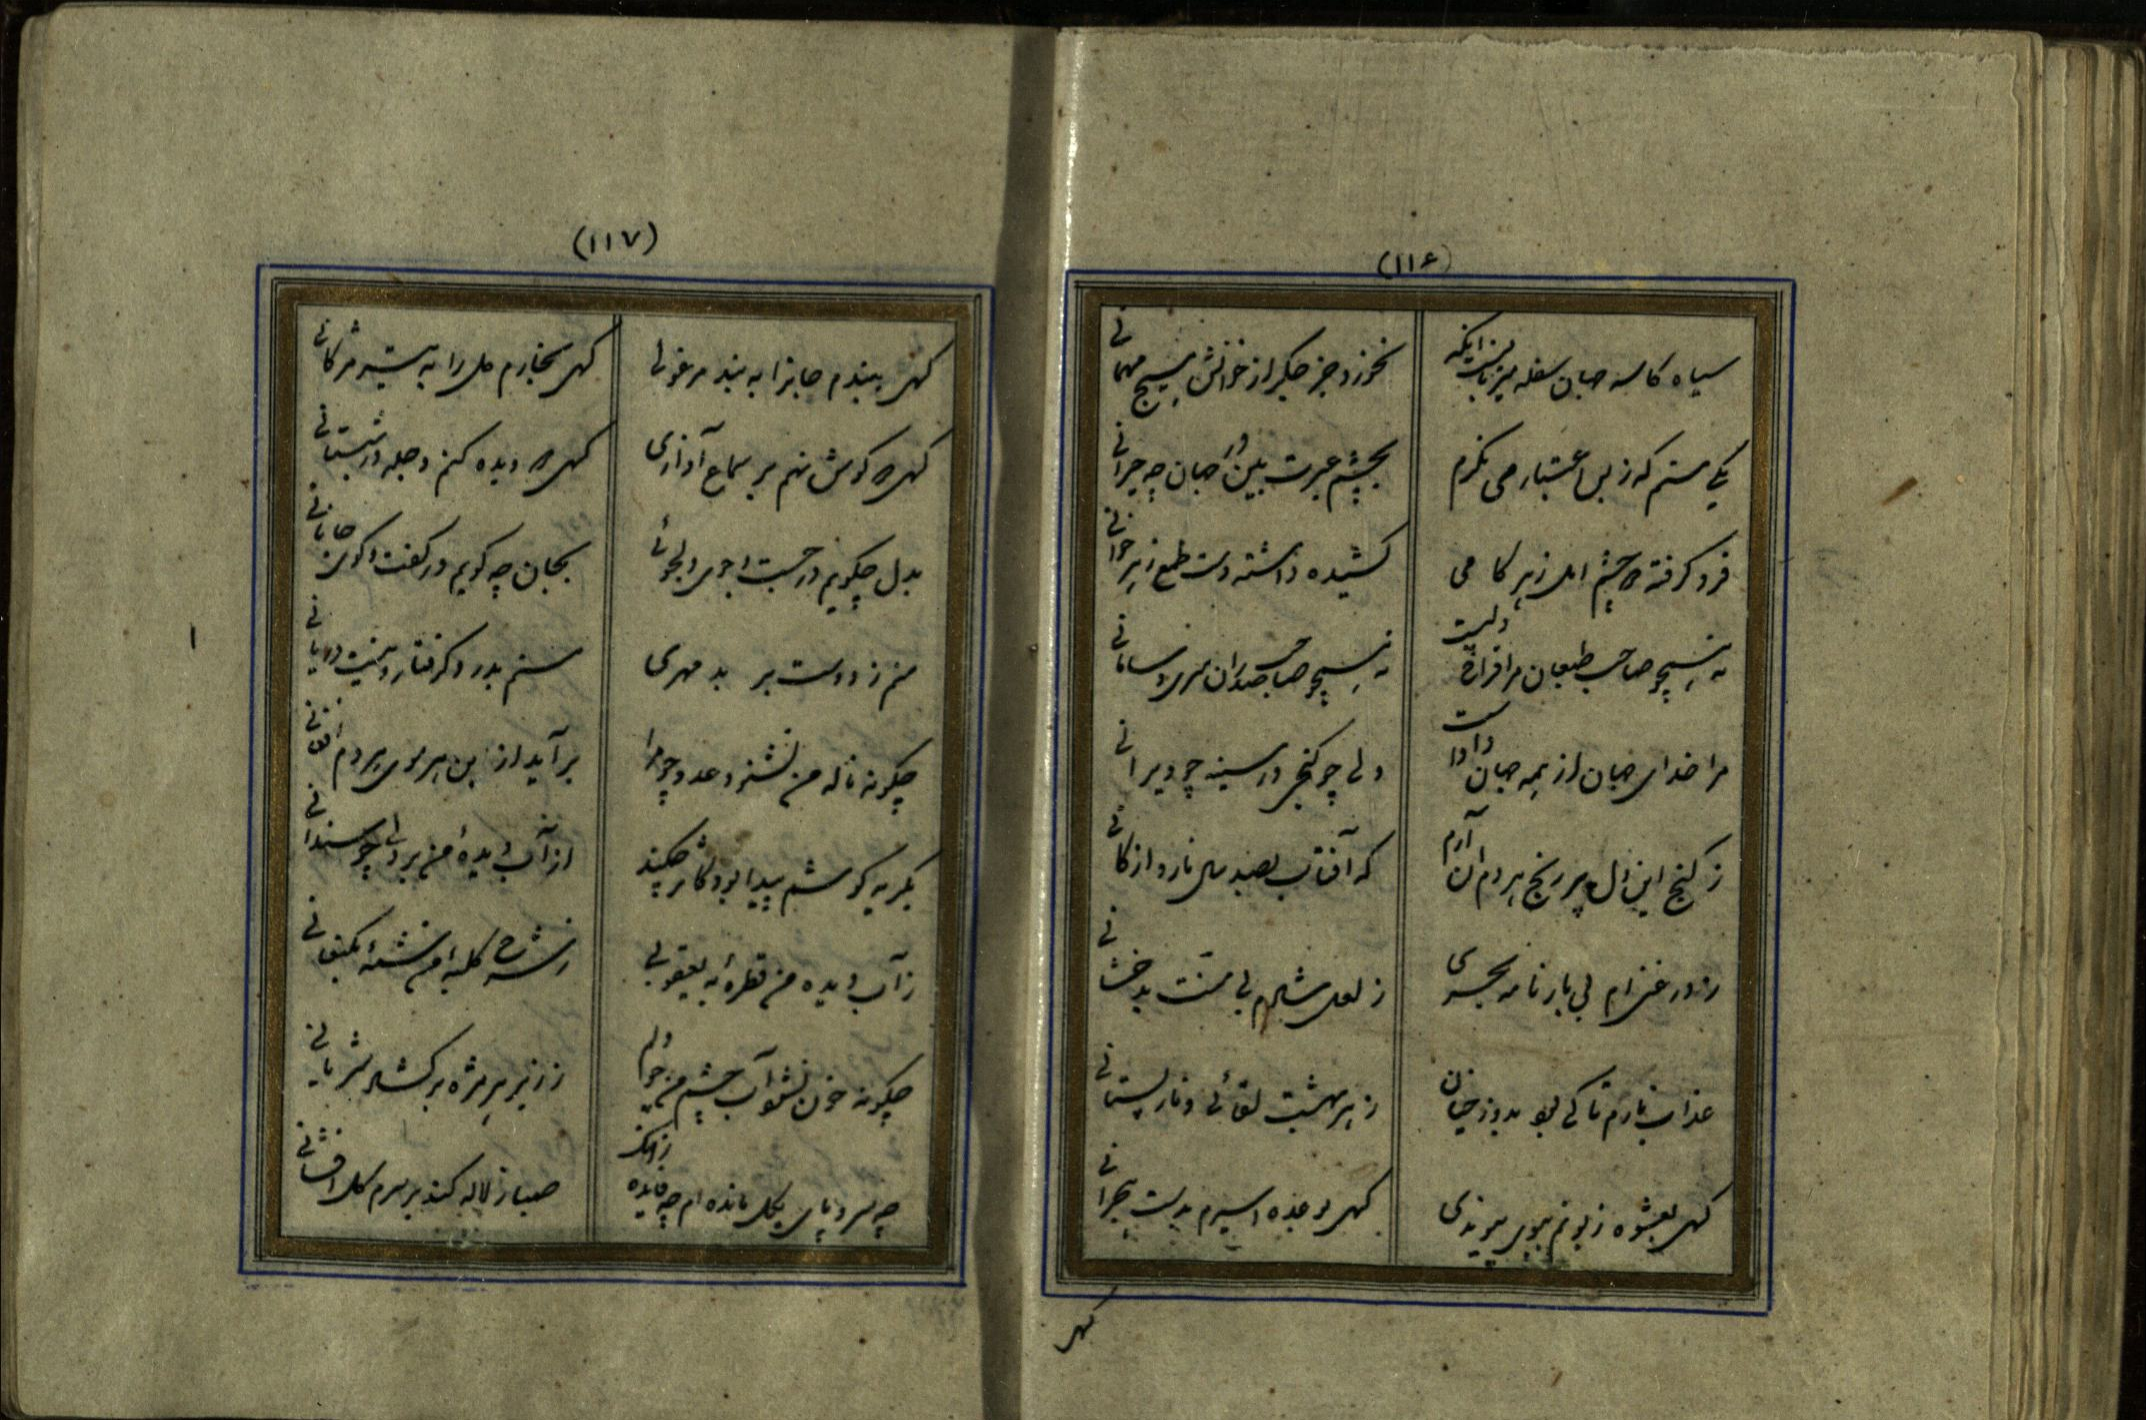 (۱۱۶)
سیاه کاسه جهان سفله میزبانیست اینکه
نخورد جز جگر از خوانش هیچ مهمانی
یکی منم که ز بس اعتبار می نگرم
بچشم عبرت بین در جهان چه حیرانی
فرو گرفته چشم امل ز هر کامی
کشیده داشته دست طمع ز هر خوانی
نه هیچو صاحب طبعان مرا فراغ دلیست
نه هیچو صاحب صدران سری و سامانی
مرا خدای جهان از همه جهان دادست
دلی چو گنجی در سینه چو ویرانی
ز گنج این دل پر رنج هر دم آن آرم
که آفتاب بصد سال نارد از کانی
ز در غنی ام بی بارنامه بحری
ز لعل شادم بی منت بدخشانی
عذاب نارم تا کی بود بدوزخیان
ز هر بهشت لقائی و نار پستانی
گهی بعشوه زبونم ببوی پیوندی
گهی بوعده اسیرم بدست هجرانی
گهی
(۱۱۷)
گهی ببندم جانرا به بند مرغولی
گهی بخارم دل را به نیش مژگانی
گهی گوش نهم بر سماع آوازی
گهی دیده کنم دجله در شبستانی
بدل چگویم در جست و جوی دلجوئی
بجان چه گویم در گفت و گوی جانانی
منم ز دوست بر بد مهری
منم بدرد گرفتار و نیست درمانی
چگونه ناله من نشنود عدو چو مرا
برآید از بن هر موی هر دم افغانی
بگریه کوشم پیدا بود چگند
از آب دیده من بر دلی چو سندانی
ز آب دیده من قطره به یعقوبی
ز شرح کلبه من شمه بکنعانی
چگونه خون نشود آب چشم من چو دلم
ز زیر هر مژه بر گشاد شریانی
چه سرو پای بگل مانده ام چه فایده زانک
صبا ز لاله کند بر سرم گل افشانی